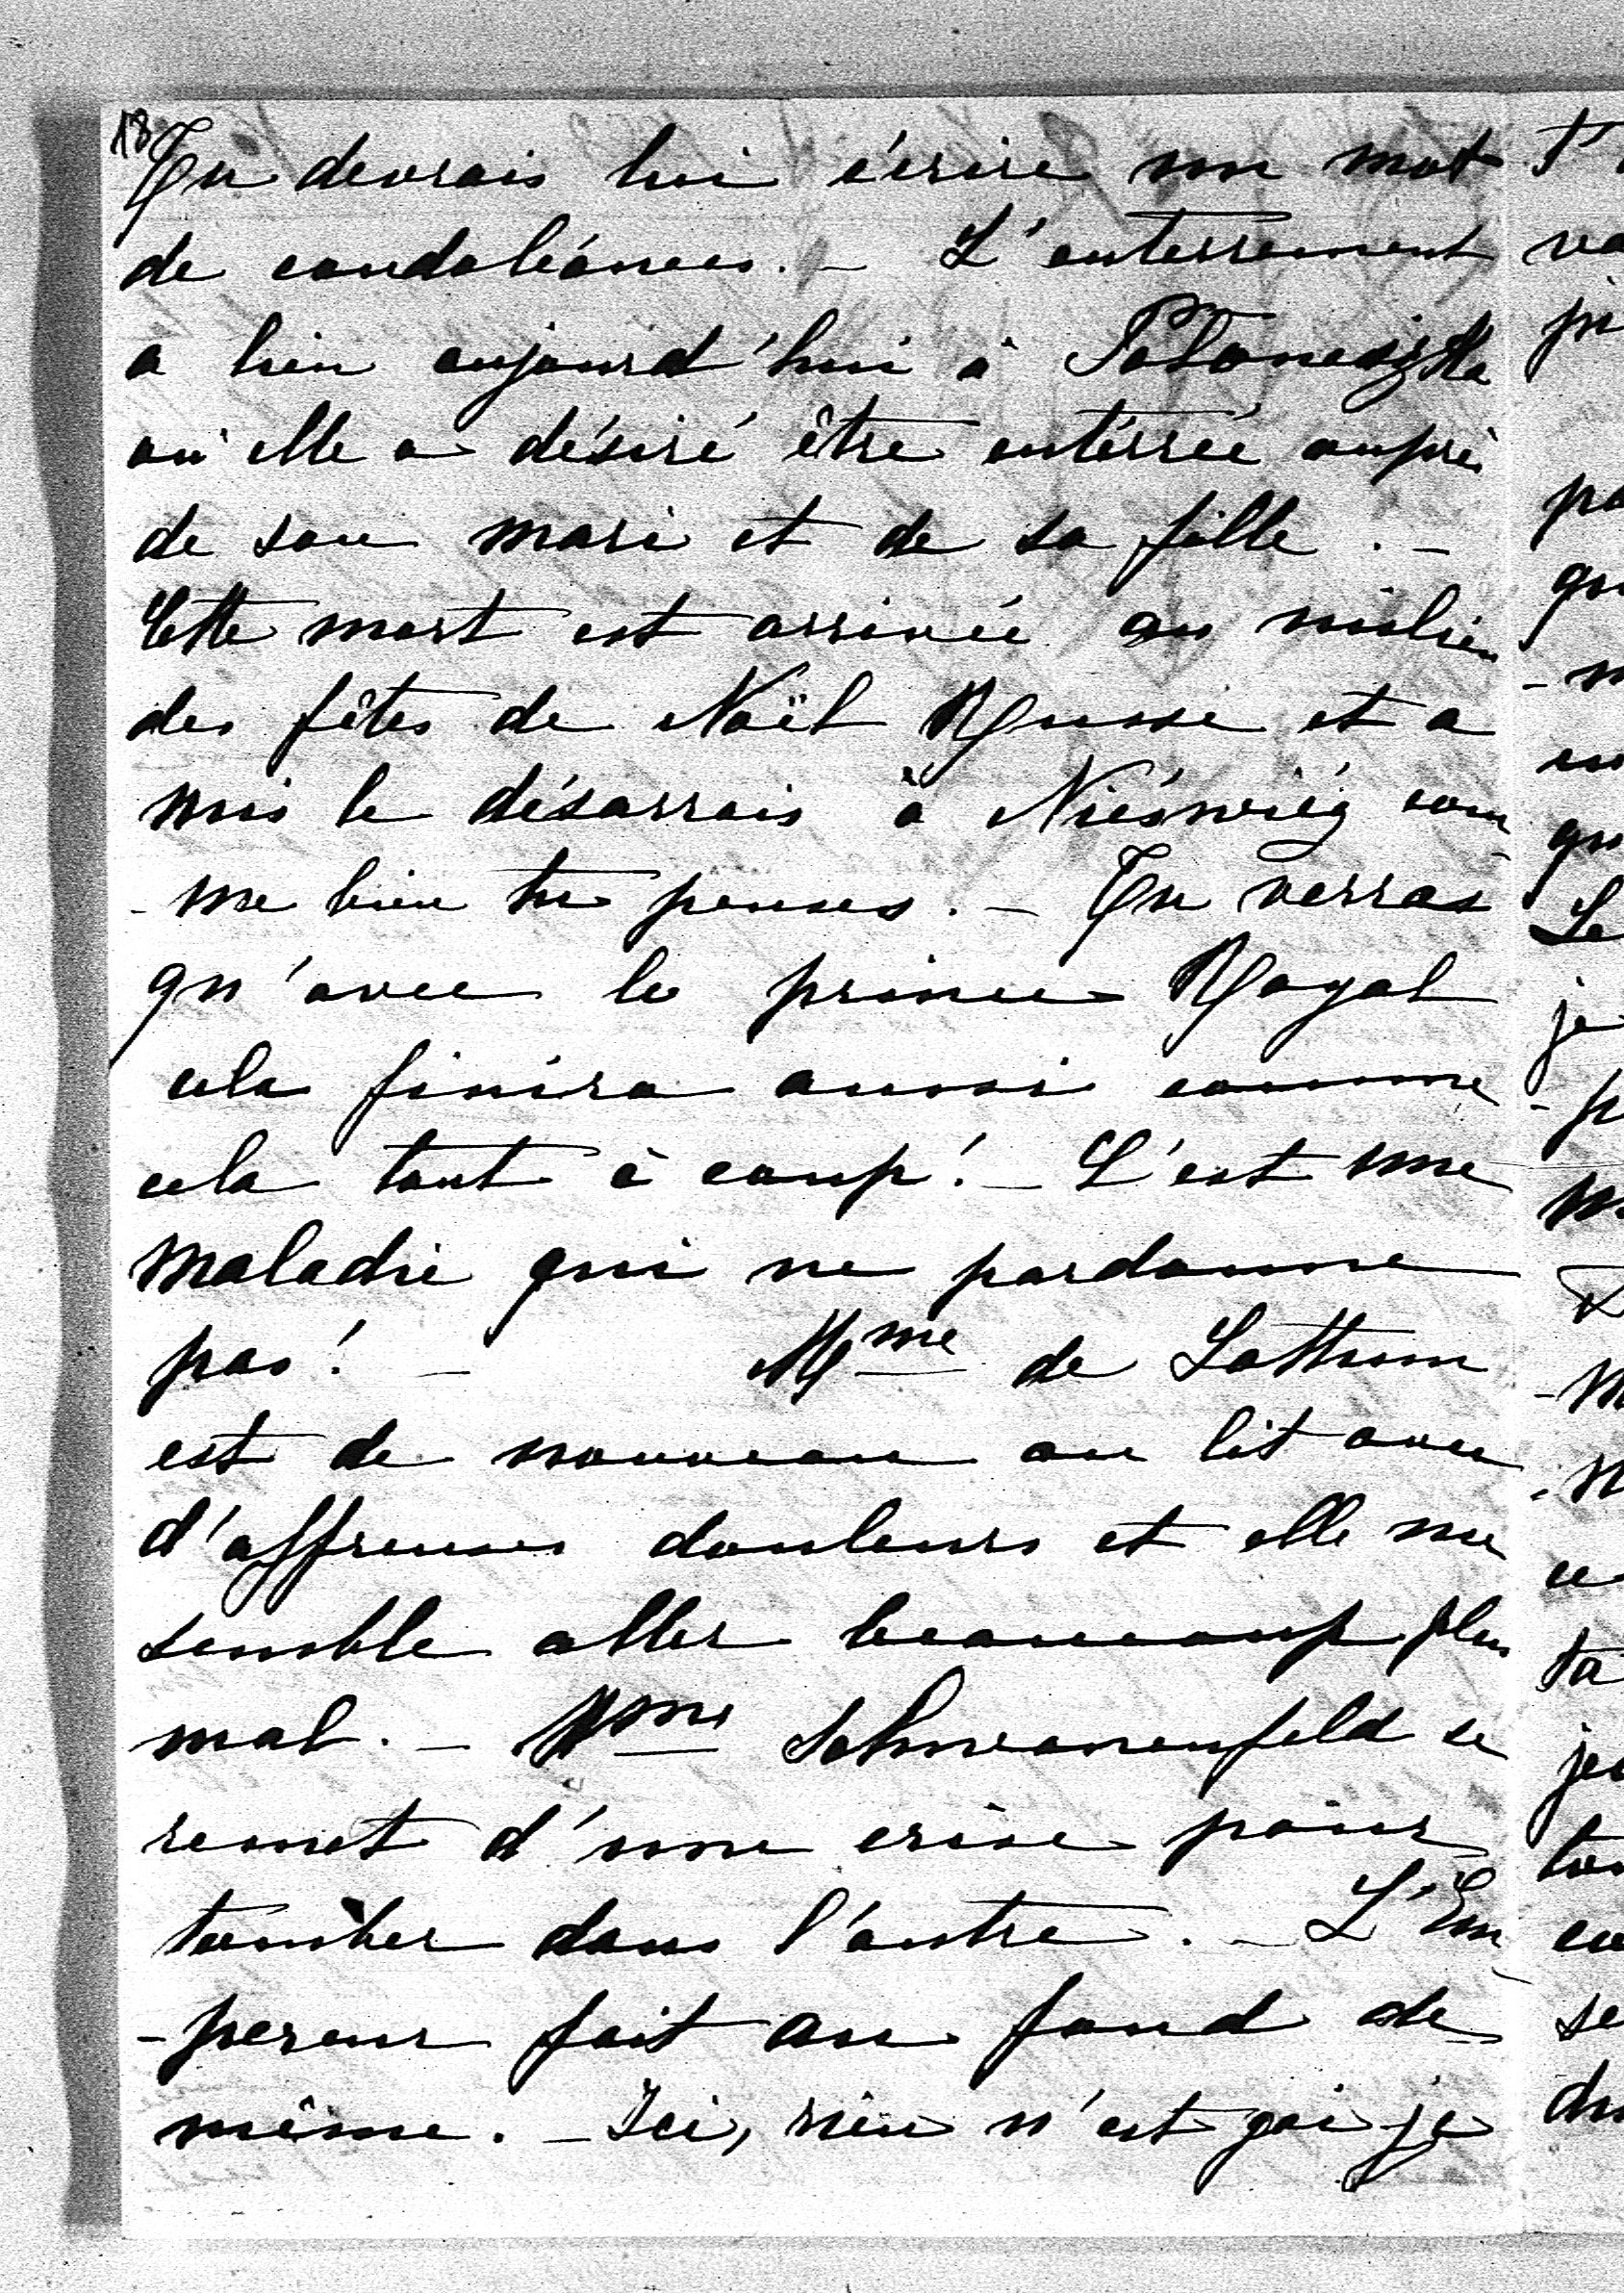 18
Tu devrais lui écrire un mot
de condoléances. - L'enterrement
a lieu aujourd'hui à Poloneczka
où elle a désiré être entérrée auprès
de son mari et de sa fille. -
Cette mort est arrivée au milieu
des fêtes de Noël Russe et a
mis le désarrois à Nieświéz com
- me bien tu penses. - Tu verras
qu'avec le prince Royal
cela finira aussi comme
cela tout à coup! - C'est une
maladie qui ne pardonne
pas! - Mme de Lottum
est de nouveau au lit avec
d'affreuses douleurs et elle me
semble aller beaucoup plus
mal. - Mme Schwanenfeld se
remet d'une crise pour
tomber dans l'autre. - L'Em
- pereur fait au fond de
même. - Ici, rien n'est gai je